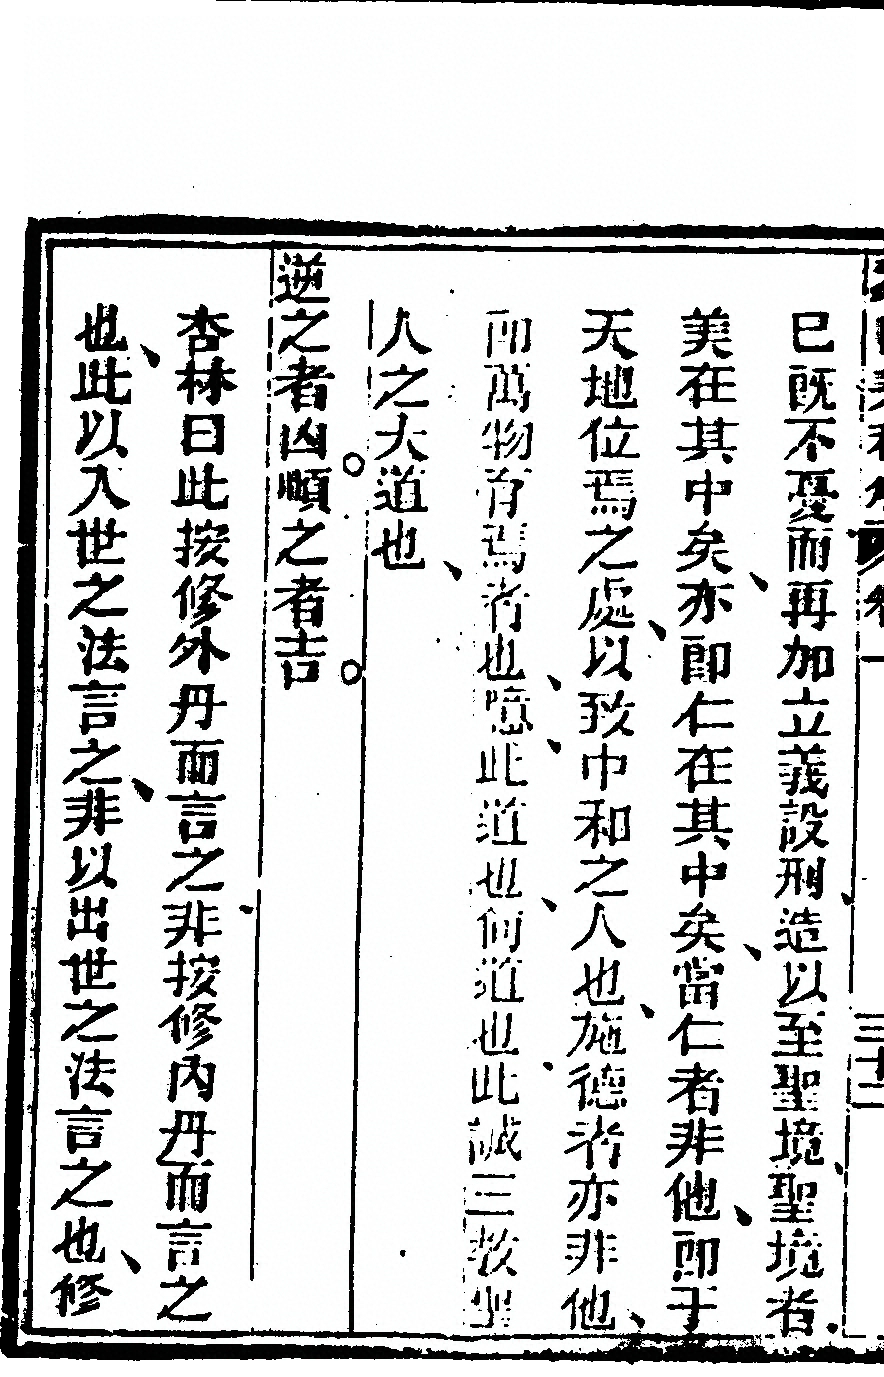 三十二
已既不憂而再加立義設刑造以至聖境聖境者
美在其中矣亦即仁在其中矣當仁者非他即于
天地位焉之處以致中和之人也施德者亦非他
即萬物育焉者也噫此道也何道也此誠三教聖
人之大道也
逆之者凶順之者吉
杏林曰此按修外丹而言之非按修內丹而言之
也此以入世之法言之非以出世之法言之也修